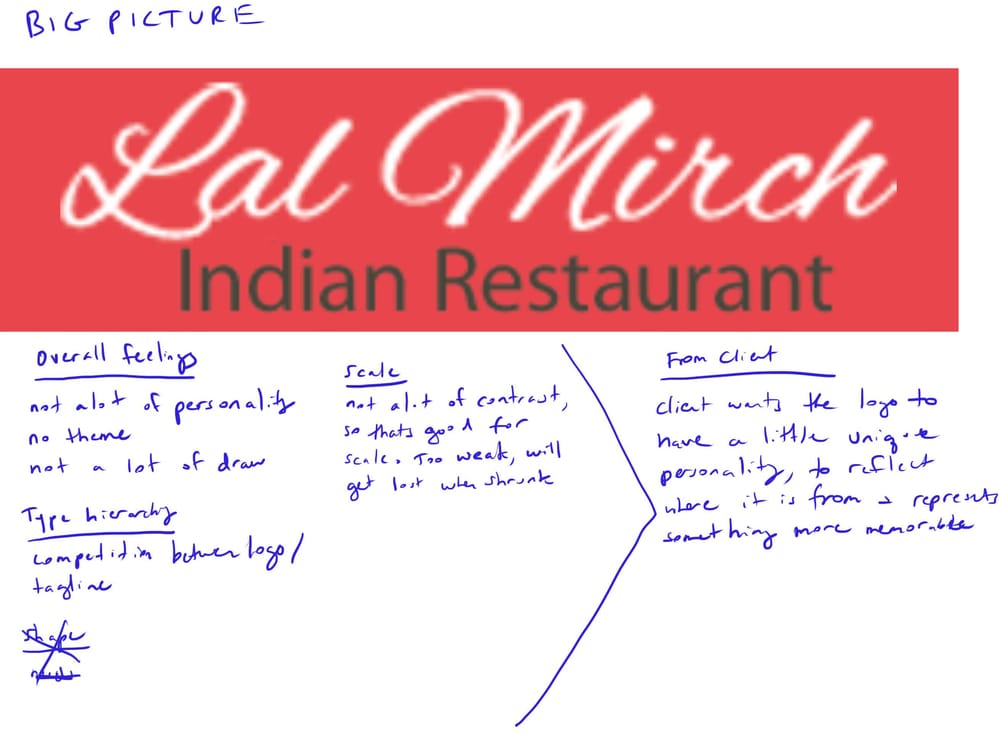 BIG PICTURE
Lal Mirch
Indian Restaurant
Overall feelings
not alot of personality
no theme
not a lot of draw
Type hierarchy
competition between logo/
tagline
shape
Scale
not alot of contrast,
so thats good for
scale. Too weak, will
get lost when shrunk
From Client
client wants the logo to
have a little unique
personality, to reflect
where it is from & represents
something more memorable